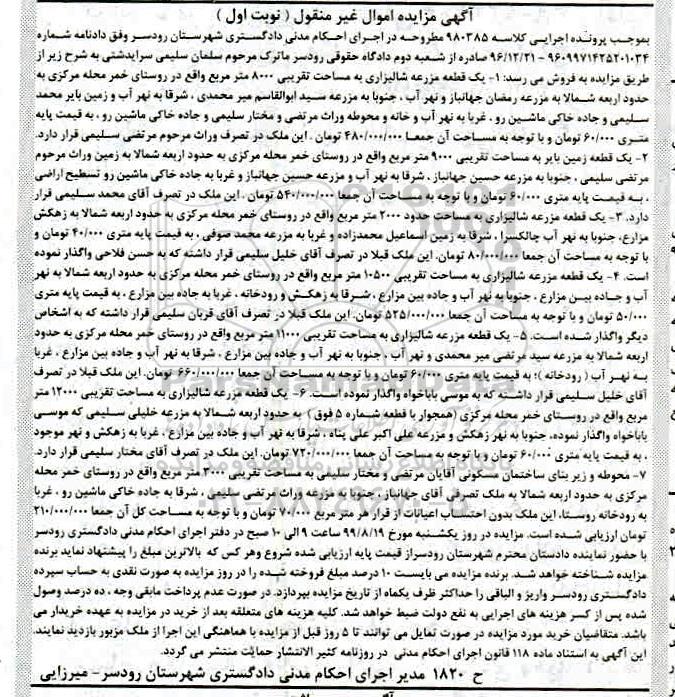 آگهی مزایده اموال غیر منقول ( نوبت اول )
بموجب پرونده اجرایی کلاسه ۹۸۰۳۸۵ مطروحه در اجرای احکام مدنی دادگستری شهرستان رودسر وفق دادنامه شماره
۹۶۰۹۹۷۱۴۳۵۲۰۱۰۳۴ – ۹۶/۱۲/۲۱ صادره از شعبه دوم دادگاه حقوقی رودسر ماترک مرحوم سلمان سلیمی سرایدشتی به شرح زیر از
طریق مزایده به فروش می رسد: ۱- یک قطعه مزرعه شالیزاری به مساحت تقریبی ۸۰۰۰ متر مربع واقع در روستای خمر محله مرکزی به
حدود اربعه شمالا به مزرعه رمضان جهانباز و نهر آب ، جنوبا به مزرعه سید ابوالقاسم میر محمدی ، شرقا به نهر آب و زمین بایر محمد
سلیمی و جاده خاکی ماشین رو ، غربا به نهر آب و خانه و محوطه وراث مرتضی و مختار سلیمی و جاده خاکی ماشین رو ، به قیمت پایه
متری ۶۰/۰۰۰ تومان و با توجه به مساحت آن جمعا ۴۸۰/۰۰۰/۰۰۰ تومان . این ملک در تصرف وراث مرحوم مرتضی سلیمی قرار دارد.
۲- یک قطعه زمین بایر به مساحت تقریبی ۹۰۰۰ متر مربع واقع در روستای خمر محله مرکزی به حدود اربعه شمالا به زمین وراث مرحوم
مرتضی سلیمی ، جنوبا به مزرعه حسین جهانباز ، شرقا به نهر آب و مزرعه حسین جهانباز و غربا به جاده خاکی ماشین رو تسطیح اراضی
، به قیمت پایه متری ۶۰/۰۰۰ تومان و با توجه به مساحت آن جمعا ۵۴۰/۰۰۰/۰۰۰ تومان . این ملک در تصرف آقای محمد سلیمی قرار
دارد. ۳- یک قطعه مزرعه شالیزاری به مساحت حدود ۲۰۰۰ متر مربع واقع در روستای خمر محله مرکزی به حدود اربعه شمالا به زهکش
مزارع، جنوبا به نهر آب چالکسرا ، شرقا به زمین اسماعیل محمدزاده و غربا به مزرعه محمد صوفی ، به قیمت پایه متری ۴۰/۰۰۰ تومان و
با توجه به مساحت آن جمعا ۸۰/۰۰۰/۰۰۰ تومان. این ملک قبلا در تصرف آقای خلیل سلیمی قرار داشته که به حسن فلاحی واگذار نموده
است. ۴- یک قطعه مزرعه شالیزاری به مساحت تقریبی ۱۰۵۰۰ متر مربع واقع در روستای خمر محله مرکزی به حدود اربعه شمالا به نهر
آب و جاده بین مزارع ، جنوبا به نهر آب و جاده بین مزارع ، شرقا به زهکش و رودخانه ، غربا به جاده بین مزارع ، به قیمت پایه متری
۵۰/۰۰۰ تومان و با توجه به مساحت آن جمعا ۵۲۵/۰۰۰/۰۰۰ تومان. این ملک قبلا در تصرف آقای قربان سلیمی قرار داشته که به اشخاص
دیگر واگذار شده است. ۵- یک قطعه مزرعه شالیزاری به مساحت تقریبی ۱۱۰۰۰ متر مربع واقع در روستای خمر محله مرکزی به حدود
اربعه شمالا به مزرعه سید مرتضی میر محمدی و نهر آب ، جنوبا به نهر آب و جاده بین مزارع ، شرقا به نهر آب و جاده بین مزارع ، غربا
به نهر آب ( رودخانه )؛ به قیمت پایه متری ۶۰/۰۰۰ تومان و با توجه به مساحت آن جمعا ۶۶۰/۰۰۰/۰۰۰ تومان. این ملک قبلا در تصرف
آقای خلیل سلیمی قرار داشته که به موسی باباخواه واگذار نموده است. ۶- یک قطعه مزرعه شالیزاری به مساحت تقریبی ۱۲۰۰۰ متر
مربع واقع در روستای خمر محله مرکزی (همجوار با قطعه شماره ۵ فوق ) به حدود اربعه شمالا به مزرعه خلیلی سلیمی که موسی
باباخواه واگذار نموده، جنوبا به نهر زهکش و مزرعه علی اکبر علی پناه ، شرقا به نهر آب و جاده بین مزارع ، غربا به زهکش و نهر موجود
، به قیمت پایه متری ۶۰/۰۰۰ تومان و با توجه به مساحت آن جمعا ۷۲۰/۰۰۰/۰۰۰ تومان. این ملک در تصرف آقای مختار سلیمی قرار دارد.
۷- محوطه و زیر بنای ساختمان مسکونی آقایان مرتضی و مختار سلیمی به مساحت تقریبی ۳۰۰۰ متر مربع واقع در روستای خمر محله
مرکزی به حدود اربعه شمالا به ملک تصرفی آقای جهانباز ، جنوبا به مزرعه وراث مرتضی سلیمی ، شرقا به جاده خاکی ماشین رو ، غربا
به رودخانه روستا، این ملک بدون احتساب اعیانات از قرار هر متر مربع ۷۰/۰۰۰ تومان و با توجه به مساحت کل آن جمعا ۲۱۰/۰۰۰/۰۰۰
تومان ارزیابی شده است. مزایده در روز یکشنبه مورخ ۹۹/۸/۱۹ ساعت ۹ الی ۱۰ صبح در دفتر اجرای احکام مدنی دادگستری رودسر
با حضور نماینده دادستان محترم شهرستان رودسر از قیمت پایه ارزیابی شده شروع و هر کس که بالاترین مبلغ را پیشنهاد نماید برنده
مزایده شناخته خواهد شد. برنده مزایده می بایست ۱۰ درصد مبلغ فروخته شده را در روز مزایده به صورت نقدی به حساب سپرده
دادگستری رودسر واریز و الباقی را حداکثر ظرف یکماه از تاریخ مزایده بپردازد. در صورت عدم پرداخت مابقی وجه ، ده درصد وصول
شده پس از کسر هزینه های اجرایی به نفع دولت ضبط خواهد شد. کلیه هزینه های متعلقه بعد از خرید در مزایده به عهده خریدار می
باشد. متقاضیان خرید مورد مزایده در صورت تمایل می توانند تا ۵ روز قبل از مزایده با هماهنگی این اجرا از ملک مزبور بازدید نمایند.
این آگهی به استناد ماده ۱۱۸ قانون اجرای احکام مدنی در روزنامه کثیر الانتشار حمایت منتشر می گردد.
ح ۱۸۲۰ مدیر اجرای احکام مدنی دادگستری شهرستان رودسر- میرزایی
ParsNamadData